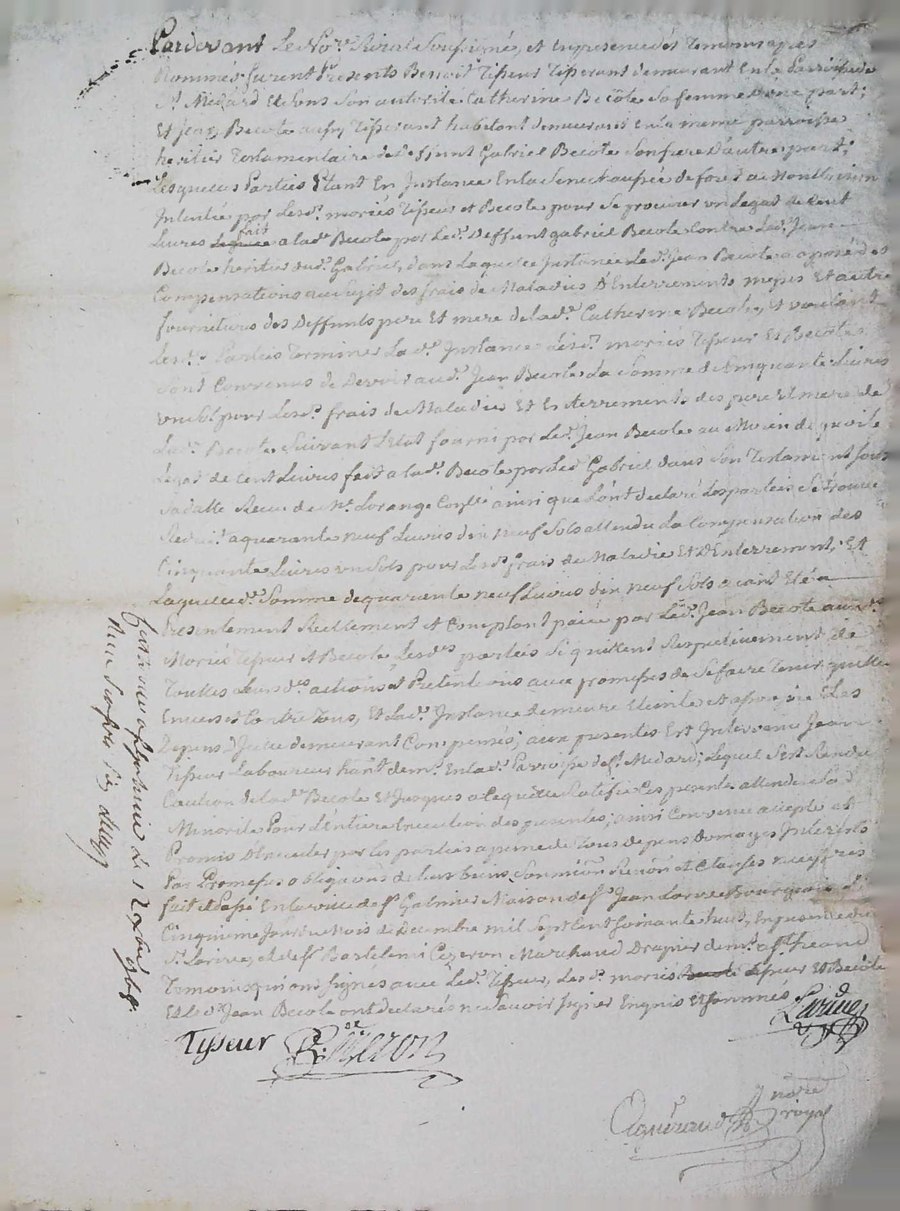 Pardevant Le No.re Roial Soussigné, et en presence des Temoins apres
Nommés furent Pr.esents Benoit Tisseur Tisserant demeurant En la Parroisse de
S.t Medard Et Sous Son autorité Catherine Becote Sa femme d'une part;
Et Jean Becote aussy Tisserant habitant demeurant En la meme parroisse
heritier Testamentaire de deffunt Gabriel Becote Son frere d'autre part;
Lesquelles Parties Etant En Instance En la Senechaussée de forest de Montbrison
Intentée par Lesd. mariés Tisseur et Becote pour Se procurer un Legat de Cent
Livres fait a lad. Becote par Led. Deffunt gabriel Becote Contre Led. Jean
Becote heritier dud. Gabriel, dans Laquelle Instance Led. Jean Becote a oposé des
Compensations au Sujet des frais de Maladies D'Enterrements et autre
fournitures des Deffunts pere Et mere de lad. Catherine Becote, Et voulant
Lesd. Parties Terminer La d. Instance Lesd. mariés Tisseur Et Becote
Sont Convenus de Devoir aud. Jean Becote La Somme de Cinquante Livres
un Sol pour Lesd. frais de Maladies et Enterrements des pere Et mere de
Lad. Becote Suivant L'Etat fourni par Led. Jean Becote au Moien de quoi le
Legat de Cent Livres fait a lad. Becote par Led. Gabriel dans Son Testament Sous
Sa datte Receu de M.e Lorange ainsi que L'ont declaré Les parties Se trouve
Reduit a quarante neuf Livres dix neuf Sols attendu La Compensation des
Cinquante Livres un Sols pour Lesd. frais de Maladie Et D'Enterrement, Et
Laquelle d. Somme de quarante neuf Livres dix neuf Sols aiant Eté a
Presentement Reellement et Comptant païée par Led. Jean Becote auxd.
Mariés Tisseur et Becote Lesd.es parties Se quittent Respectivement de
Touttes Leurs d.es actions et Pretentions avec promesses de Se faire Tenir quittes
Envers et Contre Tous, Et Lad. Instance demeure Eteinte et assoupie Les
Depens d'Icelle demeurant Compensés; aux presentes Est Intervenu Jean
Tisseur Laboureur hant dem.t En lad. Parroisse de S.t Medard; Lequel S'est Rendu
Caution de lad. Becote Et Jusques a Ce qu'elle Ratifie Les presente attendu Sa
Minorité Pour L'Entiere Execution des presentes; ainsi Convenu accepté et
Promis Executer par les parties a peine de Tous depens Domages Interests
Par Promesses obligations de leurs biens Soumission Renon.on et Clauses necessres
fait et Passé En la ville de S.t Galmier Maison de S.r Jean Larue Bourgeois Le
Cinquieme Jour du Mois de Decembre mil Sept cent Soixante huit, En presence dud.
S.r Larue, et de S.r Bartelemi Cizeron Marchand Drapier dem.t
Temoins qui ont Signés avec Led. Tisseur, Lesd. mariés Tisseur Et Becote
Et Led. Jean Becote ont declarés ne Savoir Signer Enquis Et Sommés
Larüe
Tysseur
Cizeron
notre
royal